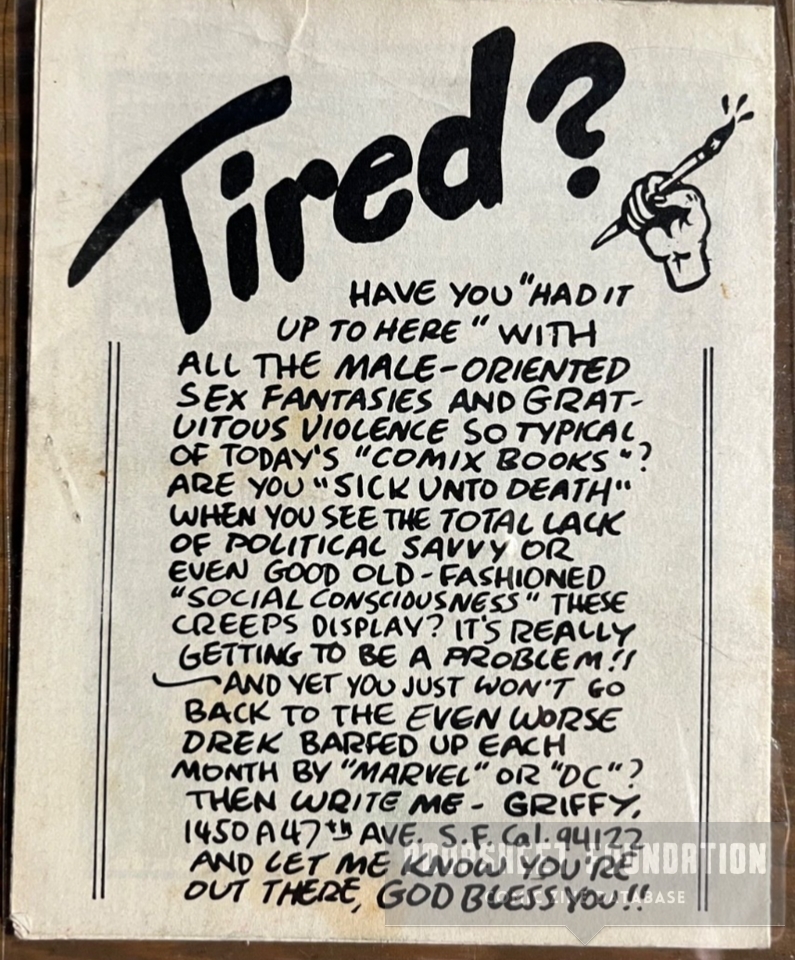 Tired?
HAVE YOU "HAD IT
UP TO HERE" WITH
ALL THE MALE-ORIENTED
SEX FANTASIES AND GRAT-
UITOUS VIOLENCE SO TYPICAL
OF TODAY'S "COMIX BOOKS"?
ARE YOU "SICK UNTO DEATH"
WHEN YOU SEE THE TOTAL LACK
OF POLITICAL SAVVY OR
EVEN GOOD OLD-FASHIONED
"SOCIAL CONSCIOUSNESS" THESE
CREEPS DISPLAY? IT'S REALLY
GETTING TO BE A PROBLEM!!
—AND YET YOU JUST WON'T GO
BACK TO THE EVEN WORSE
DREK BARFED UP EACH
MONTH BY "MARVEL" OR "DC"?
THEN WRITE ME - GRIFFY,
1450 A 47th AVE. S.F. Cal. 94122
AND LET ME KNOW YOU'RE
OUT THERE, GOD BLESS YOU!!
FOUNDATION
COMIC ZINE DATABASE